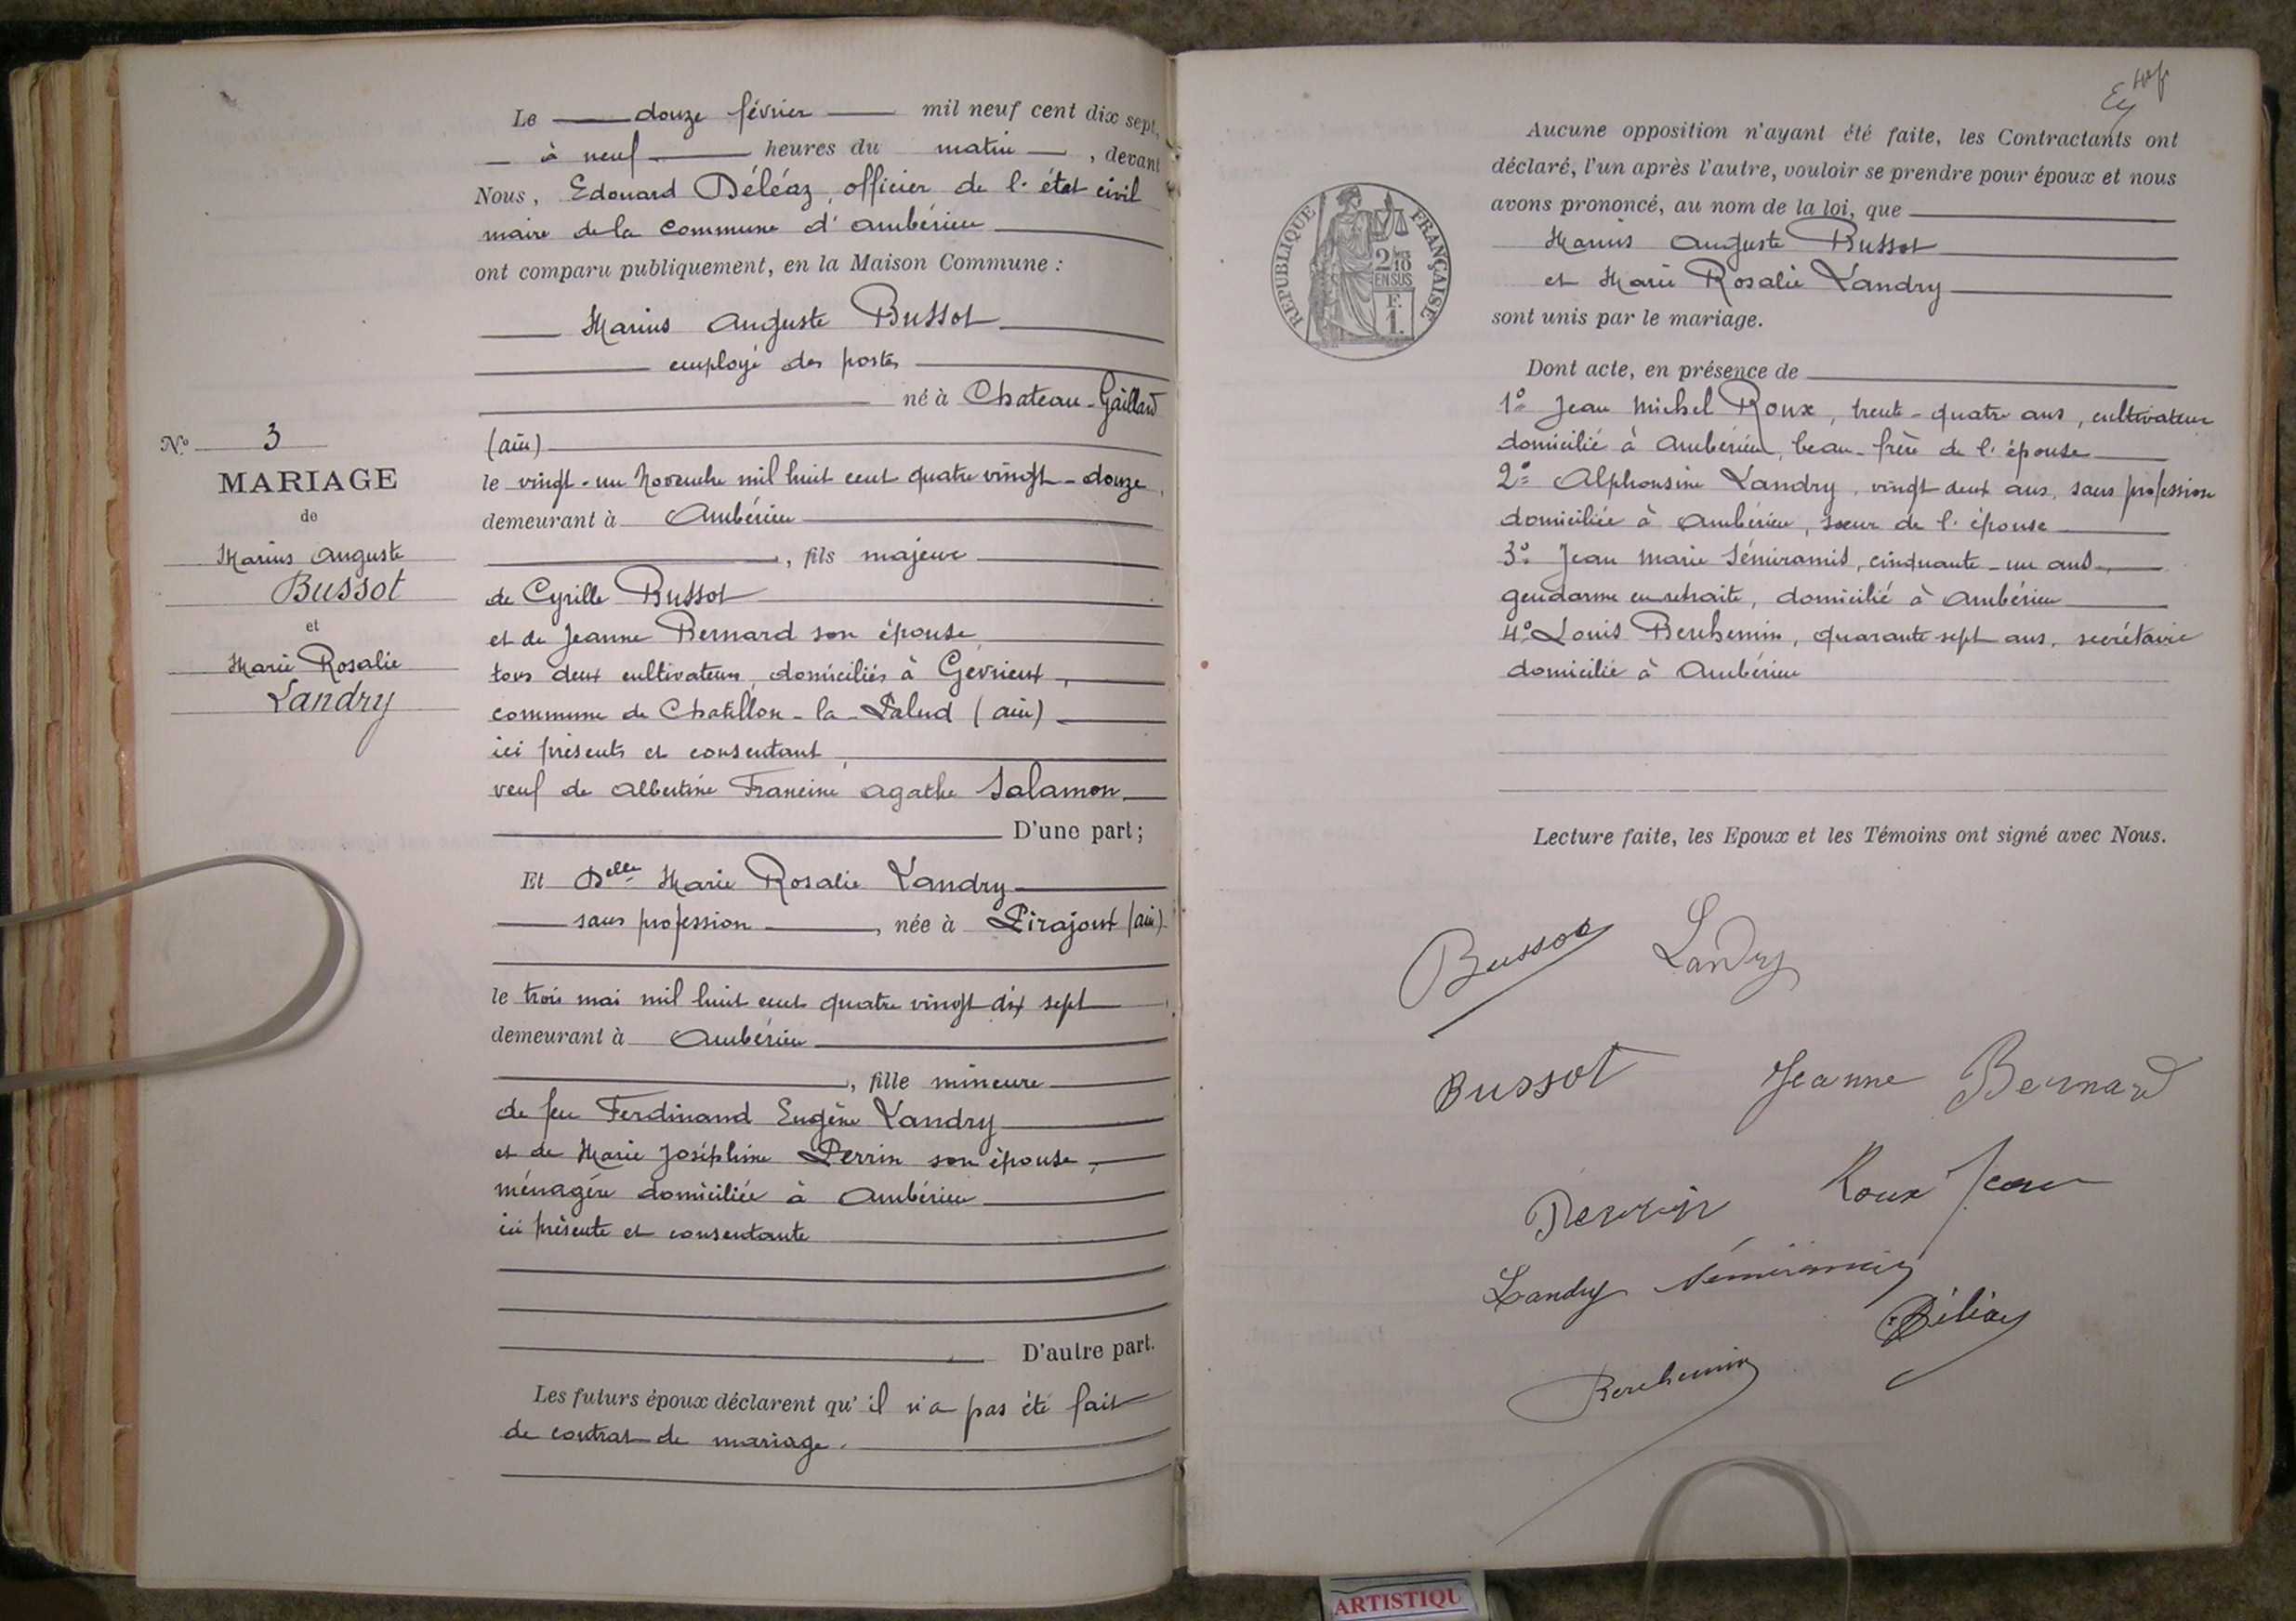 Le douze février mil neuf cent dix sept,
à neuf heures du matin, devant
Nous, Edouard Déléaz, officier de l'état civil
maire de la commune d'ambérieu
ont comparu publiquement, en la Maison Commune :
Marius Auguste Bussot
employé des postes
né à Chateau-Gaillard
(ain)
le vingt-un Novembre mil huit cent quatre vingt-douze,
demeurant à Ambérieu
, fils majeur
de Cyrille Bussot
et de Jeanne Bernard son épouse
tous deux cultivateurs, domiciliés à Gévrieux,
commune de Chatillon-la-Palud (ain)
ici présents et consentant,
veuf de Albertine Francine Agathe Salamon
D'une part;
Et Delle Marie Rosalie Landry
sans profession, née à Pirajoux (ain)
le trois mai mil huit cent quatre vingt dix sept
demeurant à Ambérieu
, fille mineure
de feu Ferdinand Eugène Landry
et de Marie Joséphine Perrin son épouse,
ménagère domiciliée à Ambérieu
ici présente et consentante
D'autre part.
Les futurs époux déclarent qu'il n'a pas été fait
de contrat de mariage.
No 3
MARIAGE
de
Marius Auguste
Bussot
et
Marie Rosalie
Landry
Aucune opposition n'ayant été faite, les Contractants ont
déclaré, l'un après l'autre, vouloir se prendre pour époux et nous
avons prononcé, au nom de la loi, que
Marius Auguste Bussot
et Marie Rosalie Landry
sont unis par le mariage.
Dont acte, en présence de
1° Jean Michel Roux, trente-quatre ans, cultivateur
domicilié à Ambérieu, beau-frère de l'épouse
2° Alphonsine Landry, vingt deux ans, sans profession
domiciliée à Ambérieu, soeur de l'épouse
3° Jean Marie Sémiramis, cinquante-un ans,
gendarme en retraite, domicilié à Ambérieu
4° Louis Berchemin, quarante sept ans, secrétaire
domicilié à Ambérieu
Lecture faite, les Epoux et les Témoins ont signé avec Nous.
Bussot Landry
Bussot Jeanne Bernard
Perrin Roux Jean
Landry Sémiramis
Déléaz
Berchemin
RÉPUBLIQUE FRANÇAISE
2/10
EN SUS
F.
1.
ARTISTIQU